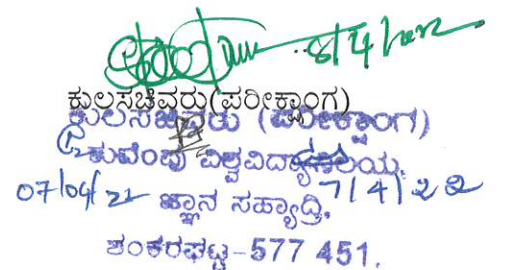 8/4/2022
ಕುಲಸಚಿವರು(ಪರೀಕ್ಷಾಂಗ)
ಕುಲಸಚಿವರು (ಪರೀಕ್ಷಾಂಗ)
ಕುವೆಂಪು ವಿಶ್ವವಿದ್ಯಾಲಯ,
07/04/22 ಜ್ಞಾನ ಸಹ್ಯಾದ್ರಿ, 7/4/22
ಶಂಕರಘಟ್ಟ-577 451.